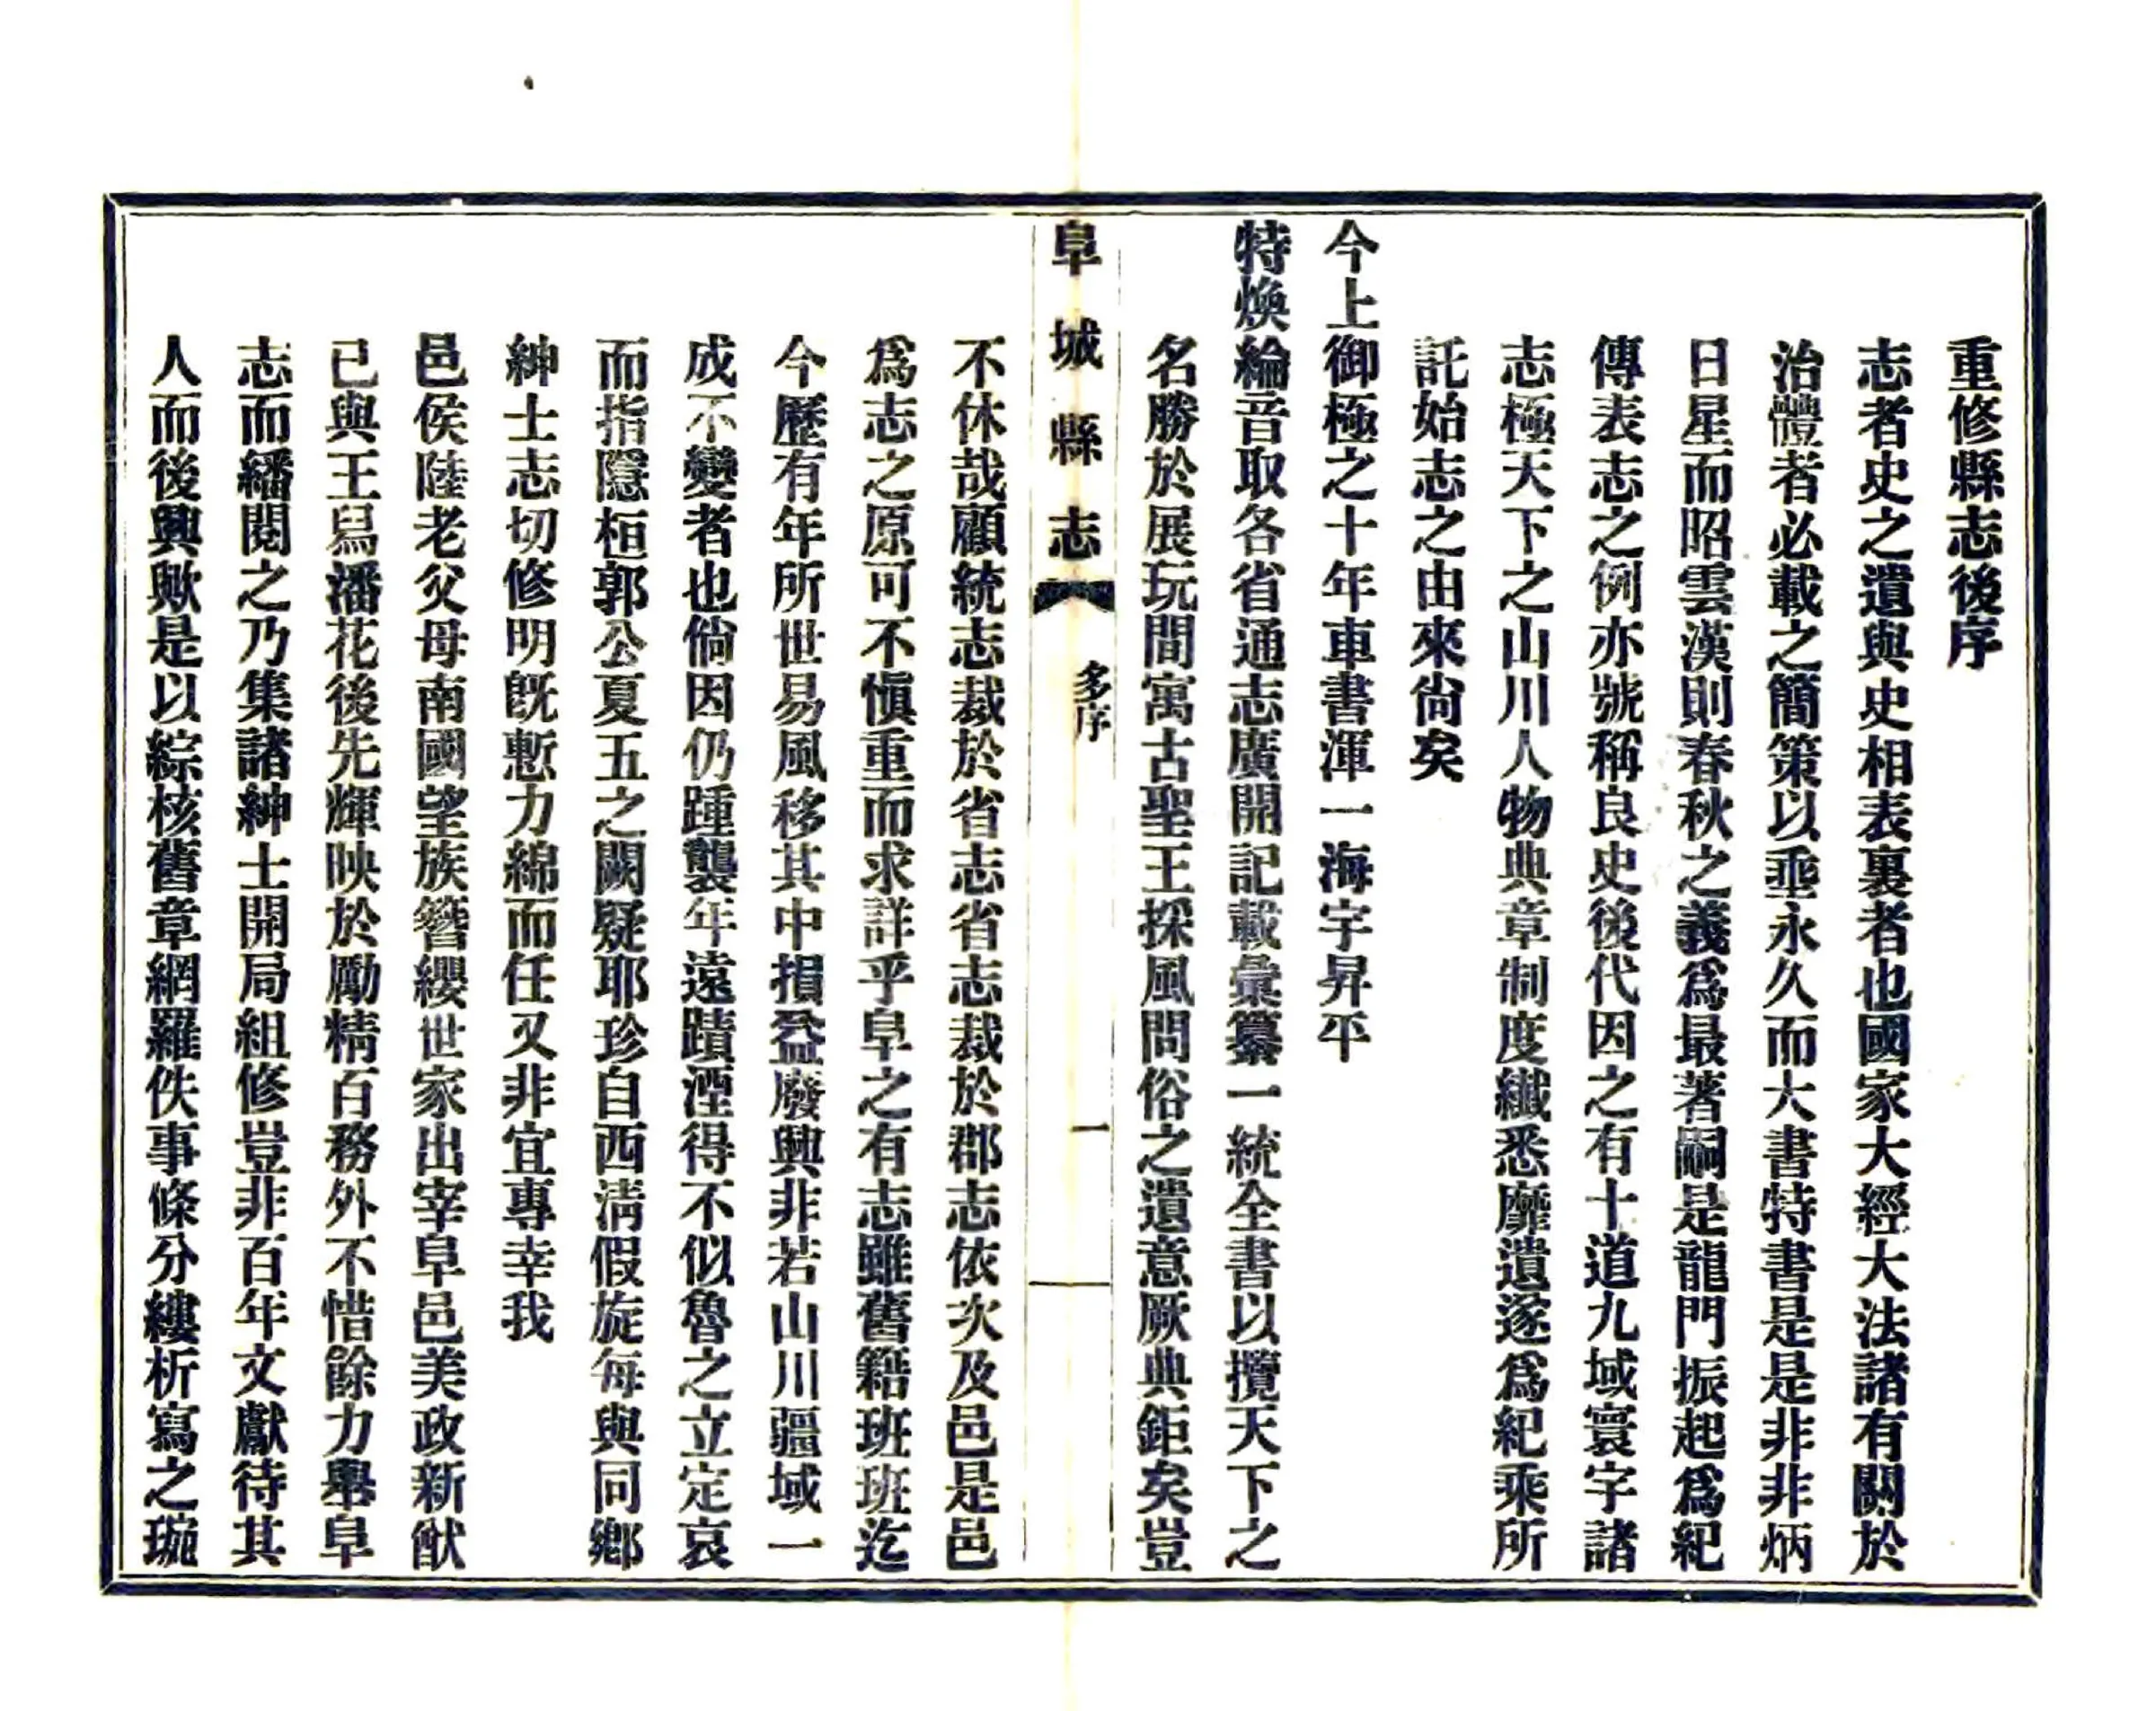 重修縣志後序
志者史之遺與史相表裏者也國家大經大法諸有關於
治體者必載之簡策以垂永久而大書特書是是非非炳
日星而昭雲漢則春秋之義爲最著嗣是龍門振起爲紀
傳表志之例亦號稱良史後代因之有十道九域寰宇諸
志極天下之山川人物典章制度纖悉靡遺遂爲紀乘所
託始志之由來尙矣
今上御極之十年車書渾一海宇昇平
特煥綸音取各省通志廣開記載彙纂一統全書以攬天下之
名勝於展玩間寓古聖王採風問俗之遺意厥典鉅矣豈
阜城縣志
序
一
不休哉顧統志裁於省志省志裁於郡志依次及邑是邑
爲志之原可不愼重而求詳乎阜之有志雖舊籍班班迄
今歷有年所世易風移其中損益廢興非若山川疆域一
成不變者也倘因仍踵襲年遠蹟湮得不似魯之立定哀
而指隱桓郭公夏五之闕疑耶珍自西淸假旋每與同鄉
紳士志切修明旣慙力綿而任又非宜專幸我
邑侯陸老父母南國望族簪纓世家出宰阜邑美政新猷
已與王舄潘花後先輝映於勵精百務外不惜餘力舉阜
志而繙閱之乃集諸紳士開局組修豈非百年文獻待其
人而後興歟是以綜核舊章網羅佚事條分縷析寫之琬